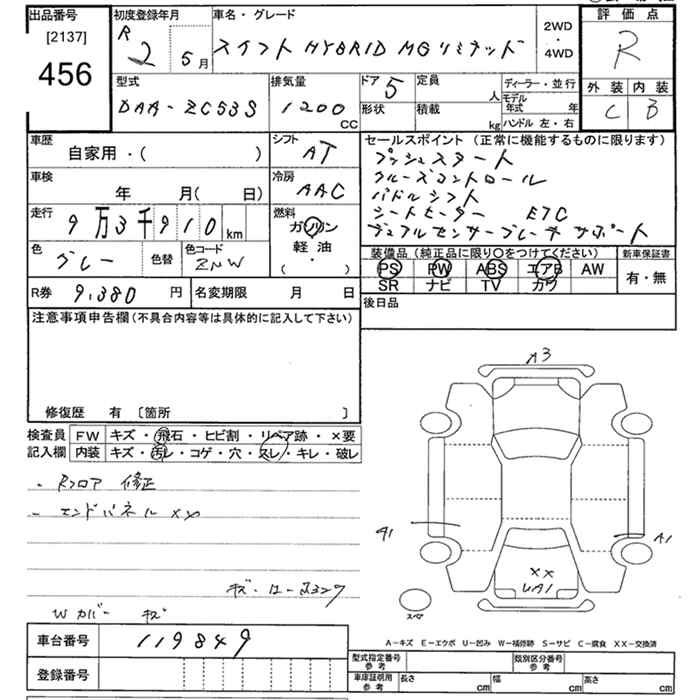 出品番号
[2137]
456
初度登録年月
R 2 5月
車名・グレード
スイフト HYBRID MGリミテッド
2WD
・
4WD
評価点
R
外装 内装
C B
型式
DAA-ZC53S
排気量
1200 CC
ドア 5
形状
定員 人
積載 kg
ディーラー・並行
モデル年式 年
ハンドル 左・右
車歴
自家用・( )
シフト
AT
車検
年 月( 日)
冷房
AAC
走行
9万3千910 km
燃料
ガソリン
軽油
( ・ )
色
グレー
色替
色コード
ZNW
R券 9,380 円
名変期限 月 日
セールスポイント(正常に機能するものに限ります)
プッシュスタート
クルーズコントロール
パドルシフト
シートヒーター ETC
デュアルセンサーブレーキサポート
装備品(純正品に限り○をつけてください)
PS PW ABS エアB AW
SR ナビ TV カワ
新車保証書
有・無
後日品
注意事項申告欄(不具合内容等は具体的に記入して下さい)
修復歴 有 [箇所 ]
検査員 FW キズ・飛石・ヒビ割・リペア跡・×要
記入欄 内装 キズ・汚レ・コゲ・穴・スレ・キレ・破レ
・Rフロア 修正
・エンドパネル XX
Wカバー キズ
A3
A1
A1
XX
UA1
スペア
A-キズ E-エクボ U-凹み W-補修跡 S-サビ C-腐食 XX-交換済
車台番号 119849
登録番号
型式指定番号 参考
類別区分番号 参考
車庫証明用 参考
長さ cm
幅 cm
高さ cm